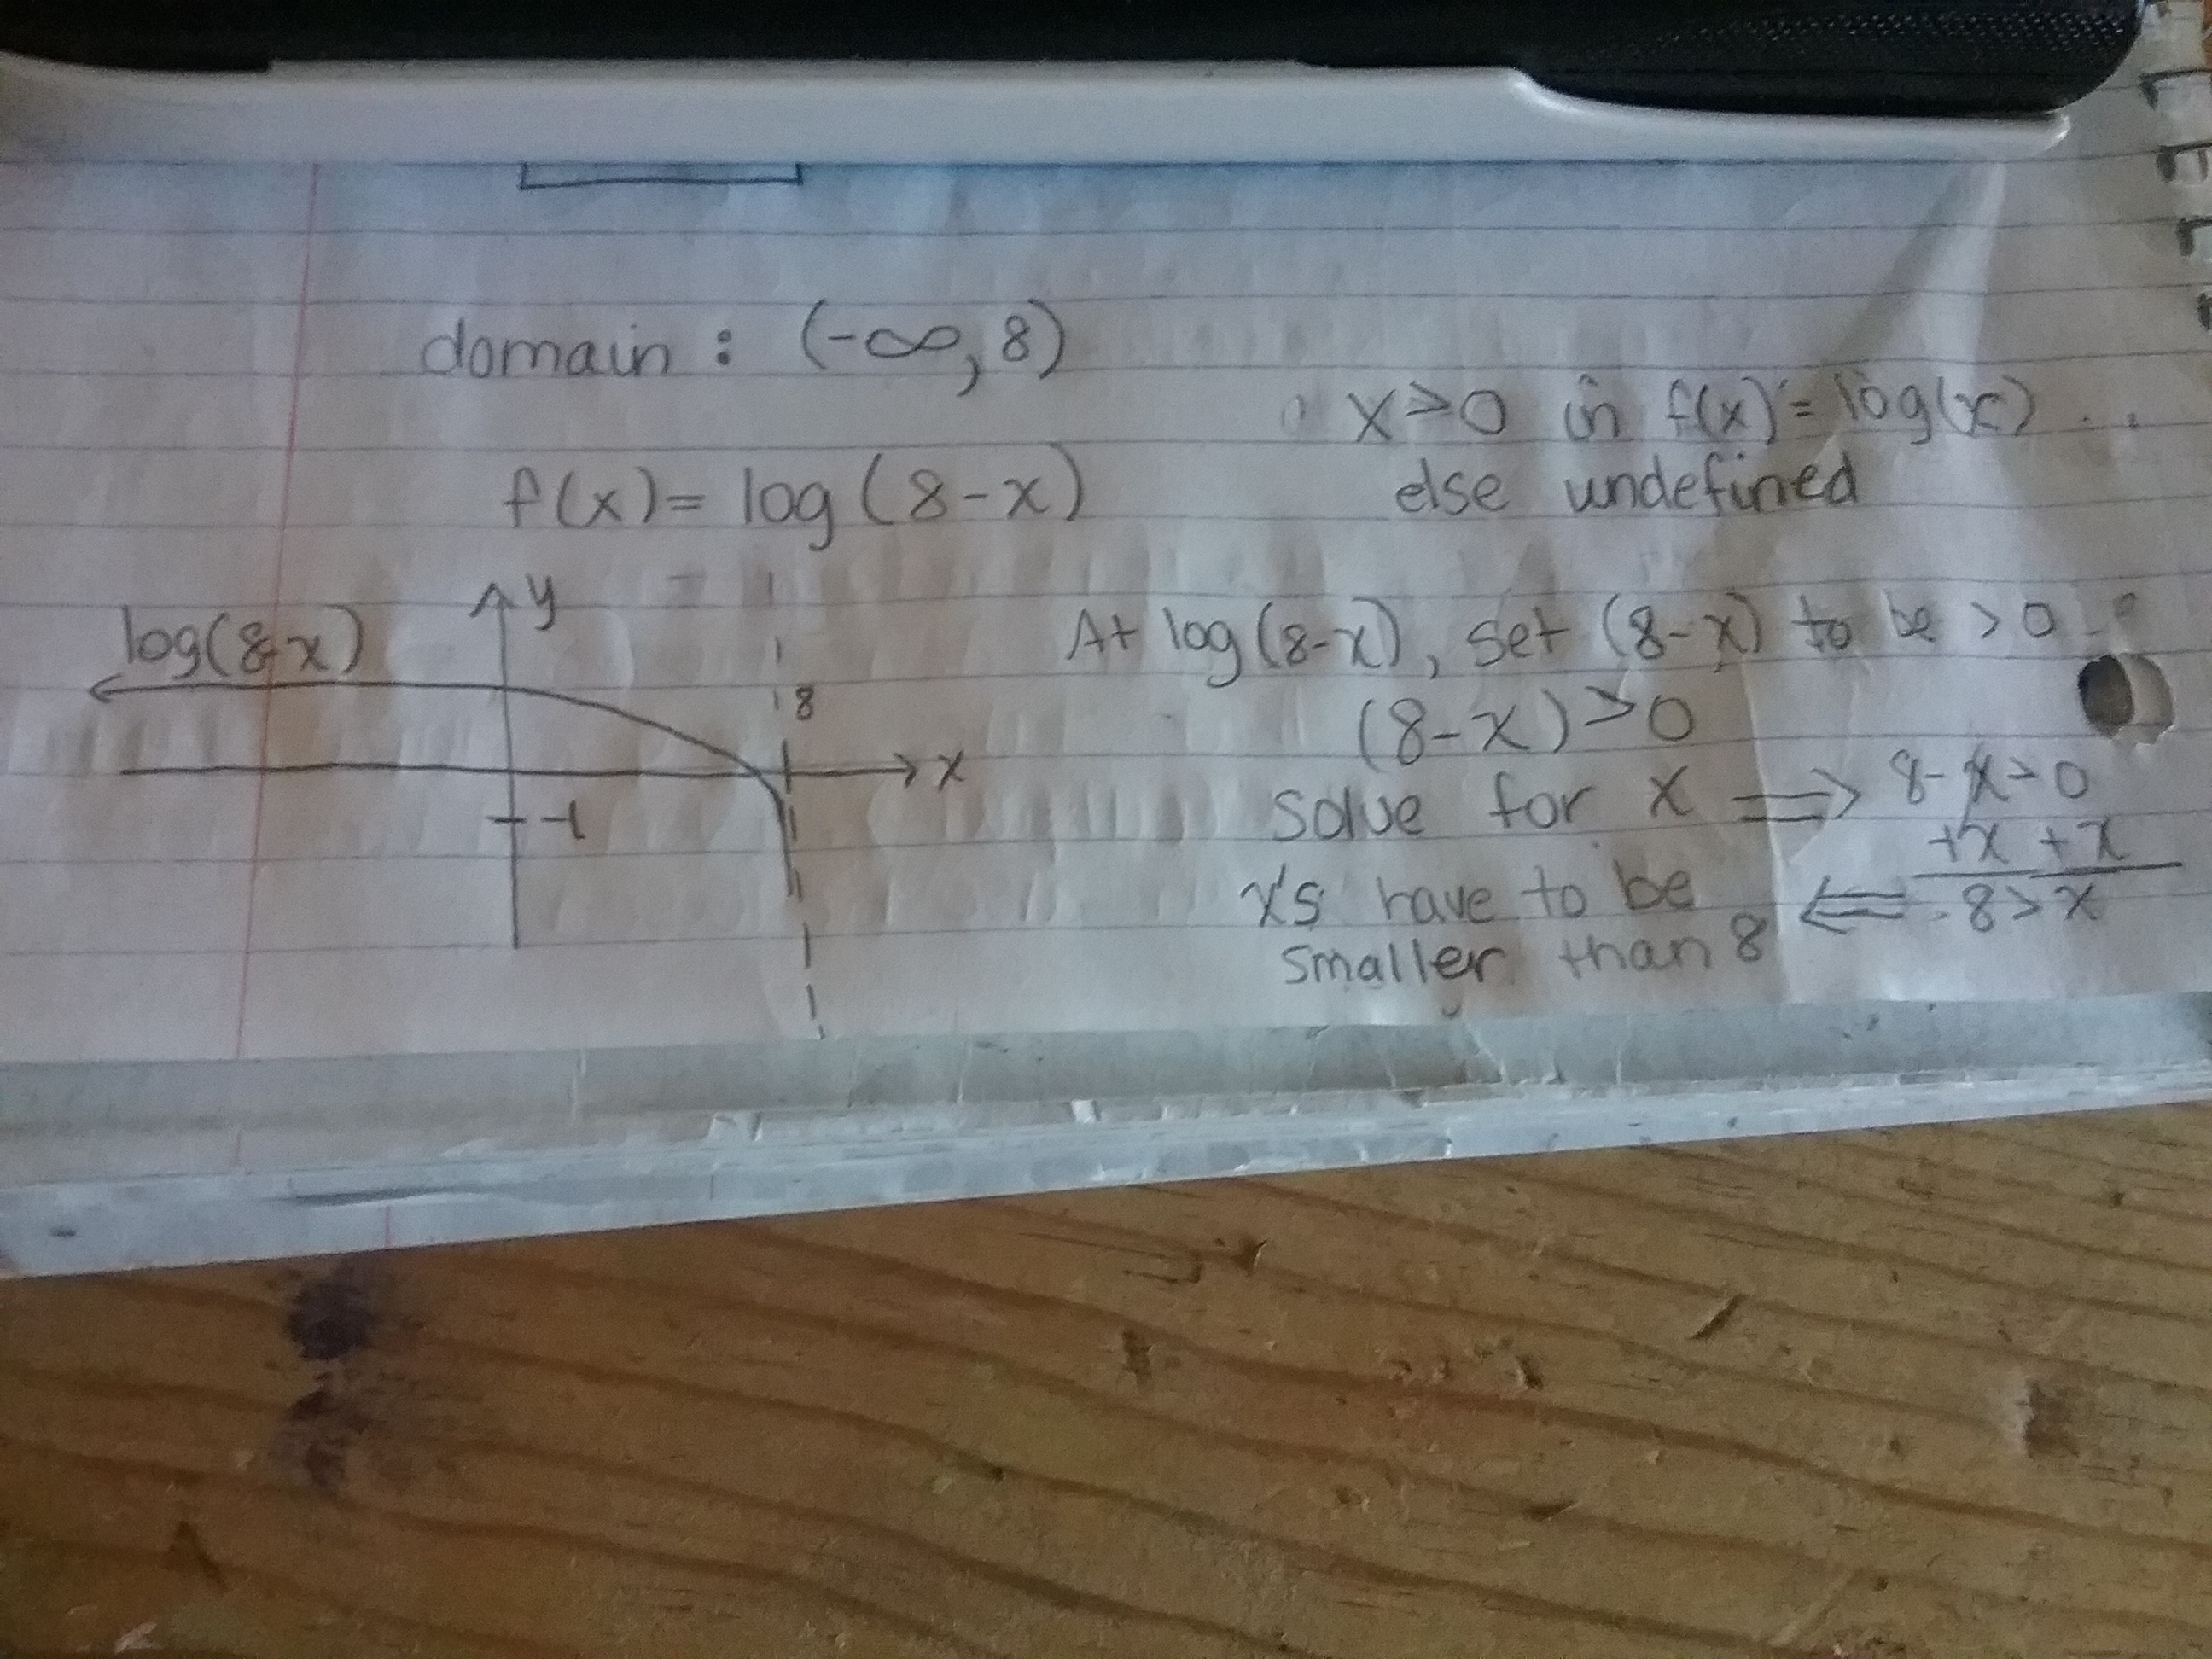 domain : (-∞, 8)
x > 0 in f(x) = log(x) ...
else undefined
f(x) = log(8-x)
y
log(8-x)
8
x
-1
At log(8-x), set (8-x) to be > 0
(8-x) > 0
solve for x ⇒ 8-x>0
+x +x
8 > x
x's have to be ⇐
smaller than 8